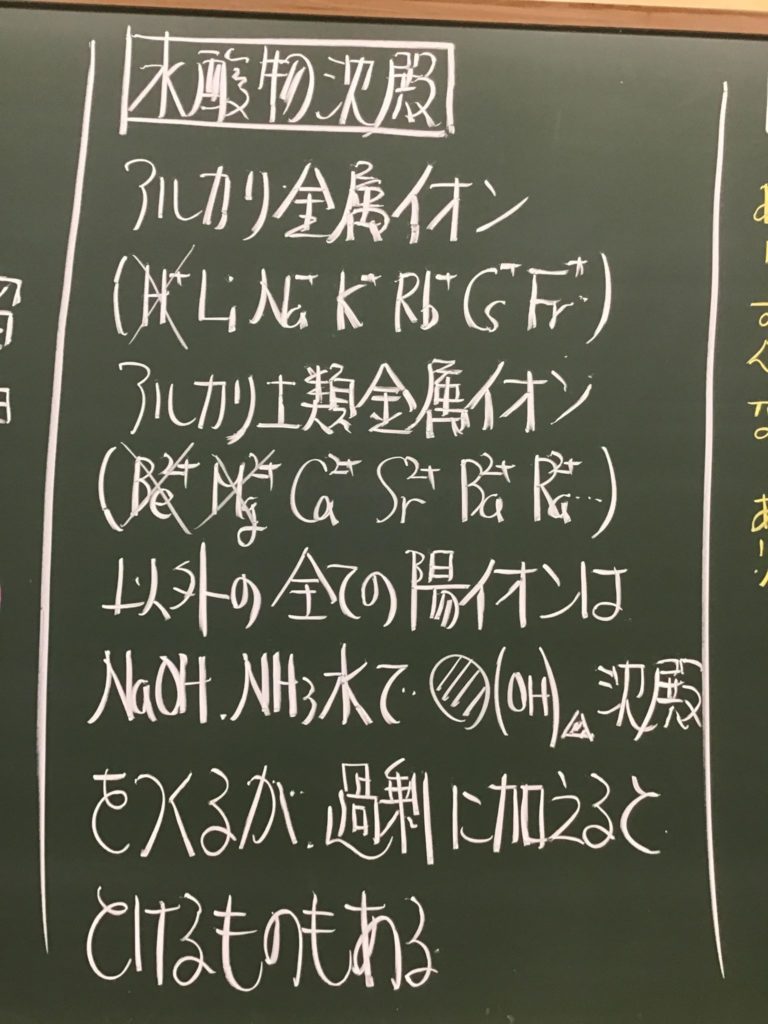 水酸物沈殿
アルカリ金属イオン
(H⁺ Li Na⁺ K⁺ Rb⁺ Cs⁺ Fr⁺)
アルカリ土類金属イオン
(Be²⁺ Mg²⁺ Ca²⁺ Sr²⁺ Ba²⁺ Ra²⁺…)
以外の全ての陽イオンは
NaOH.NH₃水で (OH) 沈殿
をつくるが.過剰に加えると
とけるものもある